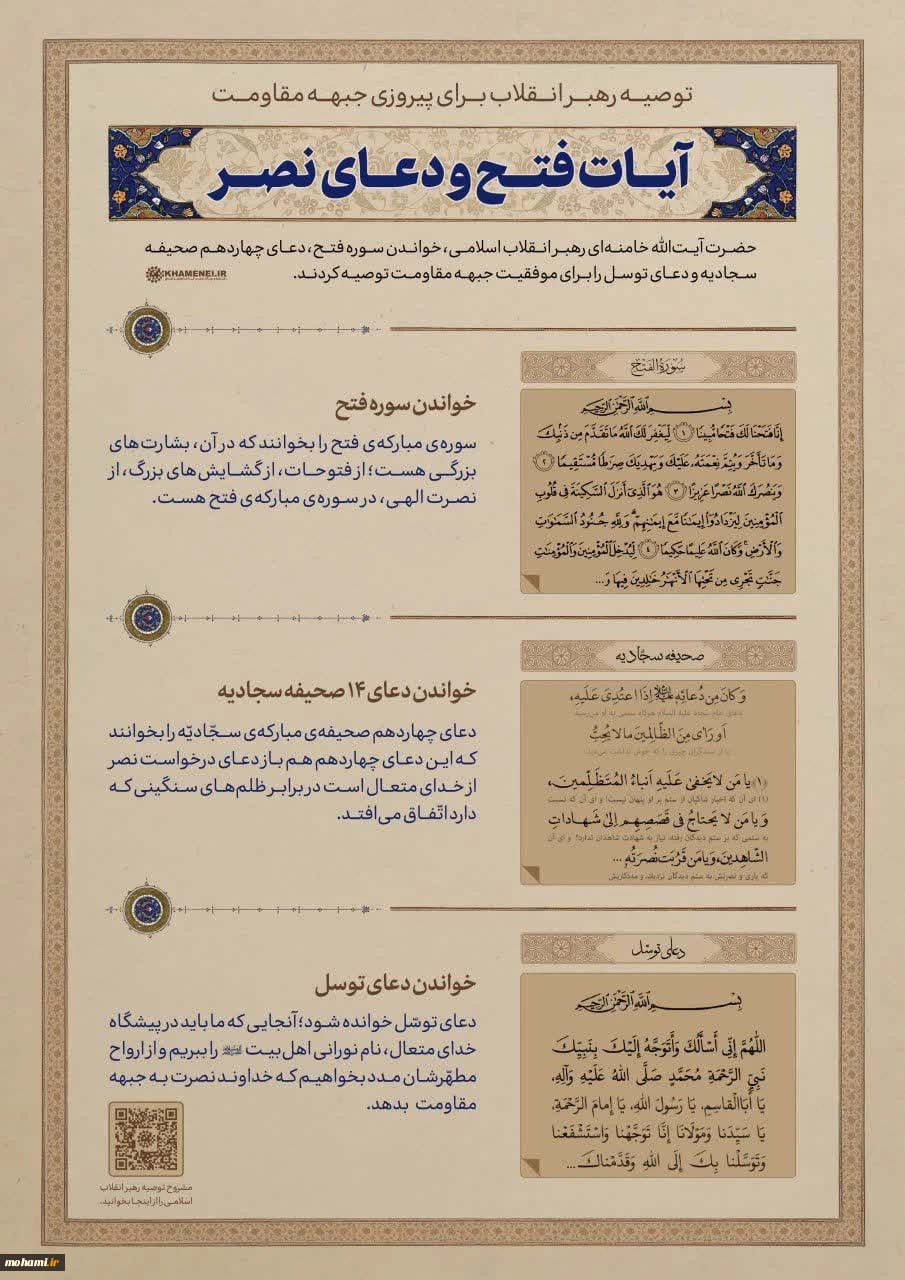 توصیه رهبر انقلاب برای پیروزی جبهه مقاومت
آیات فتح و دعای نصر
حضرت آیت‌الله خامنه‌ای رهبر انقلاب اسلامی، خواندن سوره فتح، دعای چهاردهم صحیفه
سجادیه و دعای توسل را برای موفقیت جبهه مقاومت توصیه کردند.
KHAMENEI.IR
سُورَةُ الفَتْح
بِسْمِ اللَّهِ الرَّحْمَٰنِ الرَّحِيمِ
إِنَّا فَتَحْنَا لَكَ فَتْحًا مُّبِينًا ١ لِّيَغْفِرَ لَكَ اللَّهُ مَا تَقَدَّمَ مِن ذَنبِكَ
وَمَا تَأَخَّرَ وَيُتِمَّ نِعْمَتَهُ عَلَيْكَ وَيَهْدِيَكَ صِرَاطًا مُّسْتَقِيمًا ٢
وَيَنصُرَكَ اللَّهُ نَصْرًا عَزِيزًا ٣ هُوَ الَّذِي أَنزَلَ السَّكِينَةَ فِي قُلُوبِ
الْمُؤْمِنِينَ لِيَزْدَادُوا إِيمَانًا مَّعَ إِيمَانِهِمْ وَلِلَّهِ جُنُودُ السَّمَاوَاتِ
وَالْأَرْضِ وَكَانَ اللَّهُ عَلِيمًا حَكِيمًا ٤ لِّيُدْخِلَ الْمُؤْمِنِينَ وَالْمُؤْمِنَاتِ
جَنَّاتٍ تَجْرِي مِن تَحْتِهَا الْأَنْهَارُ خَالِدِينَ فِيهَا وَ...
خواندن سوره فتح
سوره‌ی مبارکه‌ی فتح را بخوانند که در آن، بشارت‌های
بزرگی هست؛ از فتوحات، از گشایش‌های بزرگ، از
نصرت الهی، در سوره‌ی مبارکه‌ی فتح هست.
صحیفه سجّادیه
وَكَانَ مِن دُعَائِهِ عَلَيْهِ السَّلَامُ إِذَا اعْتُدِيَ عَلَيْهِ،
دعای امام سجاد علیه السلام هرگاه ستمی به او می‌رسید
أَوْ رَأَى مِنَ الظَّالِمِينَ مَا لَا يُحِبُّ
یا از ستمگران چیزی را که خوش نداشت می‌دید
﴿١﴾ يَا مَن لَا يَخْفَى عَلَيْهِ أَنْبَاءُ الْمُتَظَلِّمِينَ،
(۱) ای آن که اخبار شاکیان از ستم بر او پنهان نیست! و ای آن که نسبت
وَ يَا مَن لَا يَحْتَاجُ فِي قَصَصِهِم إِلَى شَهَادَاتِ
به ستمی که بر ستم دیدگان رفته، نیاز به شهادت شاهدان ندارد! و ای آن
الشَّاهِدِينَ، وَ يَا مَن قَرُبَتْ نُصْرَتُهُ ...
که یاری و نصرتش به ستم دیدگان نزدیک، و مددکاریش
خواندن دعای ۱۴ صحیفه سجادیه
دعای چهاردهم صحیفه‌ی مبارکه‌ی سجّادیّه را بخوانند
که این دعای چهاردهم هم باز دعای درخواست نصر
از خدای متعال است در برابر ظلم‌های سنگینی که
دارد اتّفاق می‌افتد.
دعای توسّل
بِسْمِ اللَّهِ الرَّحْمَٰنِ الرَّحِيمِ
اللَّهُمَّ إِنِّي أَسْأَلُكَ وَأَتَوَجَّهُ إِلَيْكَ بِنَبِيِّكَ
نَبِيِّ الرَّحْمَةِ مُحَمَّدٍ صَلَّى اللهُ عَلَيْهِ وَآلِهِ،
يَا أَبَاالْقَاسِمِ، يَا رَسُولَ اللهِ، يَا إِمَامَ الرَّحْمَةِ،
يَا سَيِّدَنَا وَمَوْلَانَا إِنَّا تَوَجَّهْنَا وَاسْتَشْفَعْنَا
وَتَوَسَّلْنَا بِكَ إِلَى اللهِ وَقَدَّمْنَاكَ...
خواندن دعای توسل
دعای توسّل خوانده شود؛ آنجایی که ما باید در پیشگاه
خدای متعال، نام نورانی اهل‌بیت را ببریم و از ارواح
مطهّرشان مدد بخواهیم که خداوند نصرت به جبهه
مقاومت بدهد.
مشروح توصیه رهبر انقلاب
اسلامی را از اینجا بخوانید.
mohami.ir